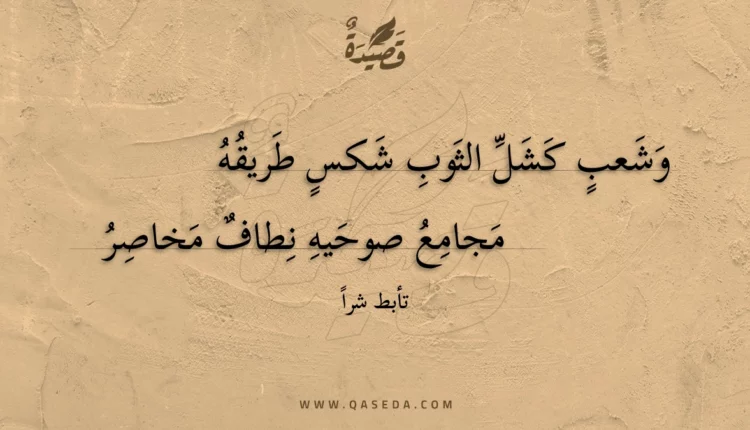 قَصِيدَةٌ
وَشَعبٍ كَشَلِّ الثَوبِ شَكسٍ طَريقُهُ
مَجامِعُ صوحَيهِ نِطافٌ مَخاصِرُ
تأبط شراً
WWW.QASEDA.COM